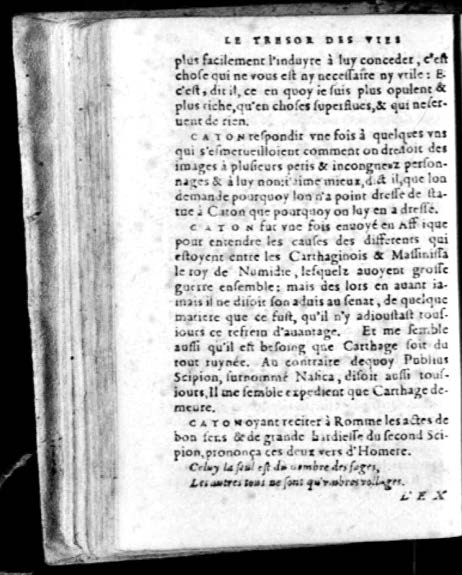 LE TRESOR DES VIES
plus facilement l'induyre à luy conceder, c'est
chose qui ne vous est ny necessaire ny vtile: E
c'est, dit il, ce en quoy ie suis plus opulent &
plus riche, qu'en choses superflues, & qui neser-
uent de rien.
CATON respondit vne fois à quelques vns
qui s'esmerueilloient comment on dressoit des
images à plusieurs petis & incongneuz person-
nages & à luy non: i'aime mieux, dist il, que lon
demande pourquoy lon n'a point dressé de sta-
tue à Caton que pourquoy on luy en a dressé.
CATON fut vne fois enuoyé en Affrique
pour entendre les causes des differents qui
estoyent entre les Carthaginois & Massinissa
le roy de Numidie, lesquelz auoyent grosse
guerre ensemble: mais des lors en auant ia-
mais il ne disoit son aduis au senat, de quelque
matiere que ce fust, qu'il n'y adioustast tous-
iours ce refrein d'auantage. Et me semble
aussi qu'il est besoing que Carthage soit du
tout ruynée. Au contraire dequoy Publius
Scipion, surnommé Nasica, disoit aussi tous-
iours, Il me semble expedient que Carthage de-
meure.
CATON oyant reciter à Romme les actes de
bon sens & de grande hardiesse du second Sci-
pion, prononça ces deux vers d'Homere.
Celuy la seul est du nombre des sages,
Les autres tous ne sont qu'vmbres vollages.
LEX